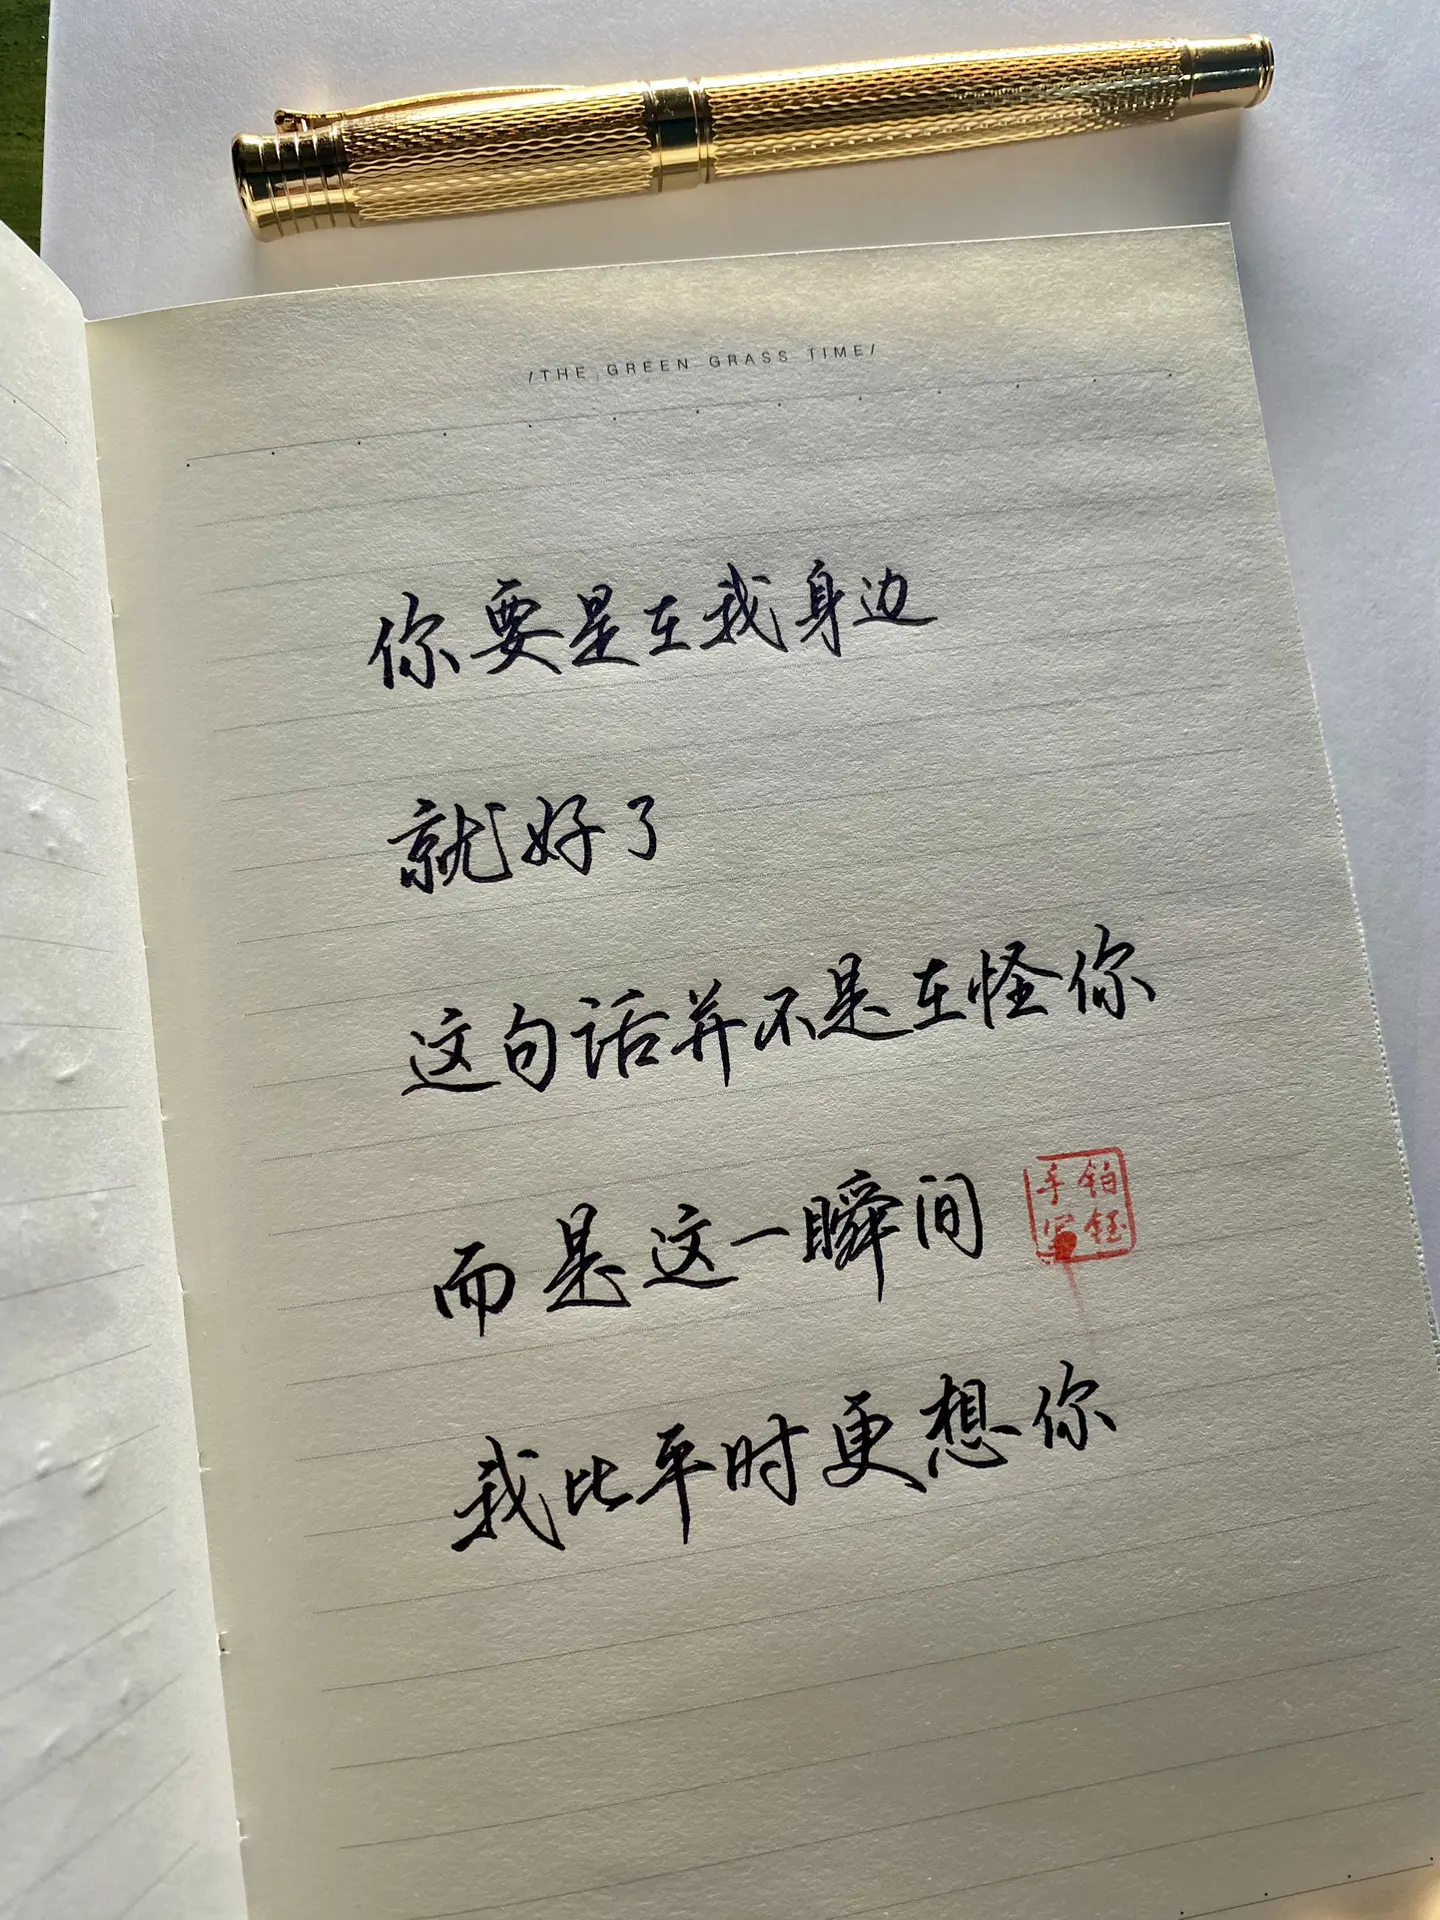 /THE GREEN GRASS TIME/
你要是在我身边
就好了
这句话并不是在怪你
而是这一瞬间
铂钰
手写
我比平时更想你